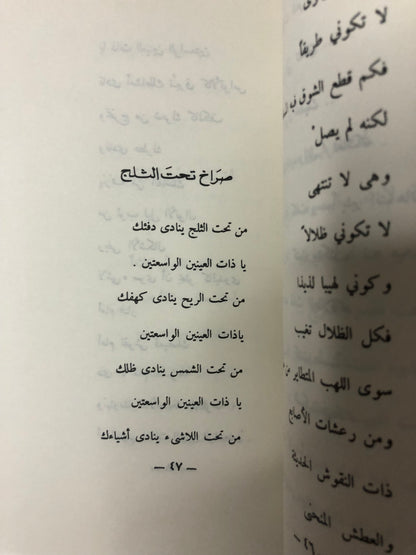 لا تكوني طريفاً
فكم قطع الشوق
لكنه لم يصل
وهى لا تنتهى
لا تكوني ظلالاً
وكوني لهيبا لذيذا
فكل الظلال تغيب
سوى اللهب المتطاير
ومن رعشات الأصابع
ذات النقوش
والعطش المنحنى
٤٦ –
صراخ تحت الثلج
من تحت الثلج ينادى دفئك
يا ذات العينين الواسعتين .
من تحت الريح ينادى كهفك
ياذات العينين الواسعتين
من تحت الشمس ينادى ظلك
يا ذات العينين الواسعتين
من تحت اللاشىء ينادى أشياءك
– ٤٧ –